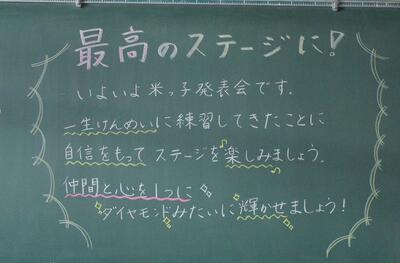 最高のステージに!
いよいよ米っ子発表会です.
一生けんめいに練習してきたことに
自信をもってステージを楽しみましょう.
仲間と心を1つに
ダイヤモンドみたいに輝かせましょう!